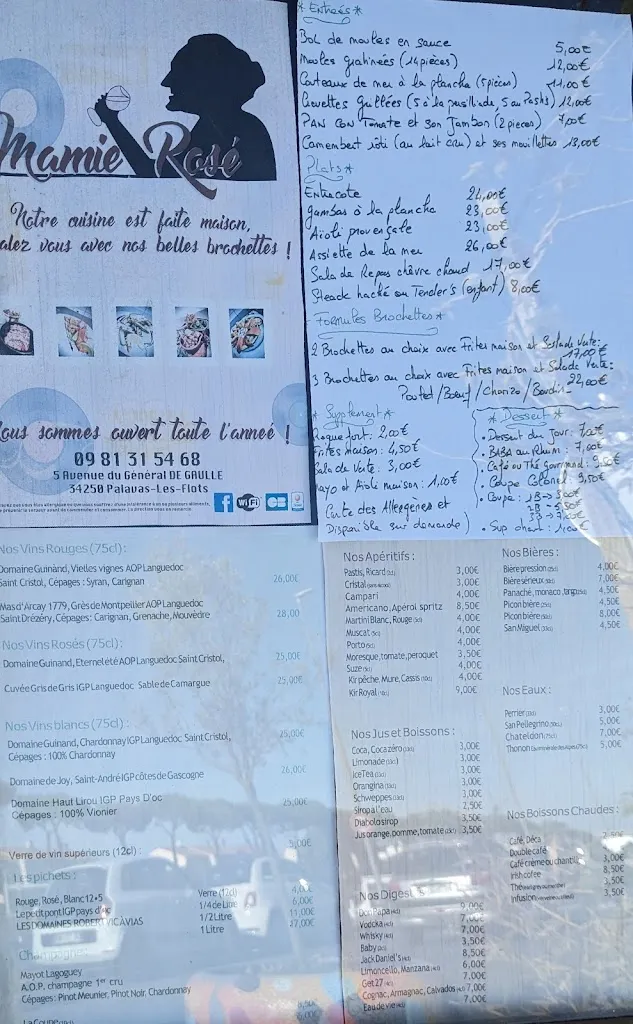 Mamie Rosé
Notre cuisine est faite maison,
alez vous avec nos belles brochettes !
ous sommes ouvert toute l'année !
09 81 31 54 68
5 Avenue du Général DE GAULLE
34250 Palavas-Les-Flots
WiFi
CB
* Entrées *
Bol de moules en sauce 5,00€
Moules gratinées (14 pièces) 12,00€
Couteaux de mer à la plancha (5 pièces) 11,00€
Crevettes Grillées (5 à la persillade, 5 au Pastis) 12,00€
PAN CON Tomate et son Jambon (2 pieces) 7,00€
Camembert rôti (au lait cru) et ses mouillettes 13,00€
Plats *
Entrecote 24,00€
Gambas à la plancha 23,00€
Aïoli provençale 23,00€
Assiette de la mer 26,00€
Salade Repas chèvre chaud 17,00€
Steack haché ou Tender's (enfant) 8,00€
Formules Brochettes *
2 Brochettes au choix avec Frites maison et Salade Verte:
17,00€
3 Brochettes au choix avec Frites maison et Salade Verte:
22,00€
Poulet/Boeuf/Chorizo/Boudin
* Supplement *
Roquefort: 2,00€
Frites Maison: 4,50€
Salade Verte: 3,00€
Mayo et Aïoli maison: 1,00€
Carte des Allergènes et
Disponible sur demande)
* Dessert *
. Dessert du Jour:
. BABA au Rhum: 7,00€
. Café ou Thé Gourmand: 9,50€
. Coupe Colonel 9,50€
. Coupe: 1B →
2B →
3B →
. Sup chant: 1,00€
Nos Vins Rouges (75cl) :
Domaine Guinand, Vielles vignes AOP Languedoc
Saint Cristol, Cépages : Syran, Carignan 26,00€
Mas d'Arcay 1779, Grès de Montpellier AOP Languedoc
Saint Drézéry, Cépages : Carignan, Grenache, Mouvèdre 28,00
Nos Vins Rosés (75cl) :
Domaine Guinand, Eternel été AOP Languedoc Saint Cristol, 25,00€
Cuvée Gris de Gris IGP Languedoc Sable de Camargue 25,00€
Nos Vins blancs (75cl) :
Domaine Guinand, Chardonnay IGP Languedoc Saint Cristol, 25,00€
Cépages : 100% Chardonnay
Domaine de Joy, Saint-André IGP côtes de Gascogne 26,00€
Domaine Haut Lirou IGP Pays D'oc 25,00€
Cépages : 100% Vionier
Verre de vin supérieurs (12cl) : 5,00€
Les pichets :
Rouge, Rosé, Blanc 12•5 Verre (12cl) 4,00€
Le petit pont IGP pays d'oc 1/4 de Litre 6,00€
LES DOMAINES ROBERT VIC AVIAS 1/2 Litre 11,00€
1 Litre 17,00€
Champagne
Mayot Lagoguey
A.O.P. champagne 1er cru
Cépages : Pinot Meunier, Pinot Noir, Chardonnay
La Coupe
Nos Apéritifs :
Pastis, Ricard 3,00€
Cristal 3,00€
Campari 4,00€
Americano, Aperol spritz 8,50€
Martini Blanc, Rouge 4,00€
Muscat 4,00€
Porto 4,00€
Moresque, tomate, peroquet 3,50€
Suze 4,00€
Kir pêche, Mure, Cassis 4,00€
Kir Royal 9,00€
Nos Jus et Boissons :
Coca, Coca zéro 3,00€
Limonade 3,00€
Ice Tea 3,00€
Orangina 3,00€
Schweppes 3,00€
Sirop a l'eau 2,50€
Diabolo sirop 3,50€
Jus orange, pomme, tomate 3,50€
Nos Digestifs
Don Papa 9,00€
Voocka 7,00€
Whisky 7,00€
Baby 3,50€
Jack Daniel's 8,50€
Limoncello, Manzana 6,00€
Get 27 7,00€
Cognac, Armagnac, Calvados 7,00€
Eau de vie 7,00€
Nos Bières :
Biere pression 4,00€
Bière sérieux 7,00€
Panaché, monaco, tango 4,50€
Picon bière 4,50€
Picon bière 8,00€
San Miguel 4,50€
Nos Eaux :
Perrier 3,00€
San Pellegrino 5,00€
Chateldon 7,00€
Thonon 5,00€
Nos Boissons Chaudes :
Café, Déca
Double café
Café crème ou chantilly 3,00€
Irish cofee 8,50€
Thé 3,50€
Infusion 3,50€